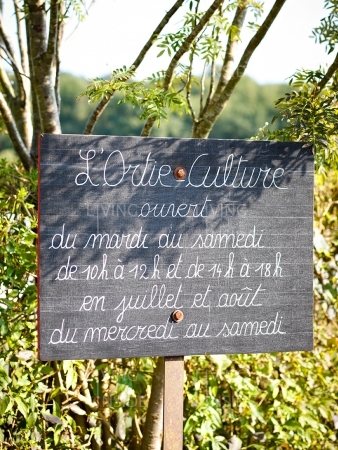 L'Ortie-Culture
ouvert
LIVING LIVING
du mardi au samedi
de 10h à 12h et de 14h à 18h
en juillet et août
du mercredi au samedi